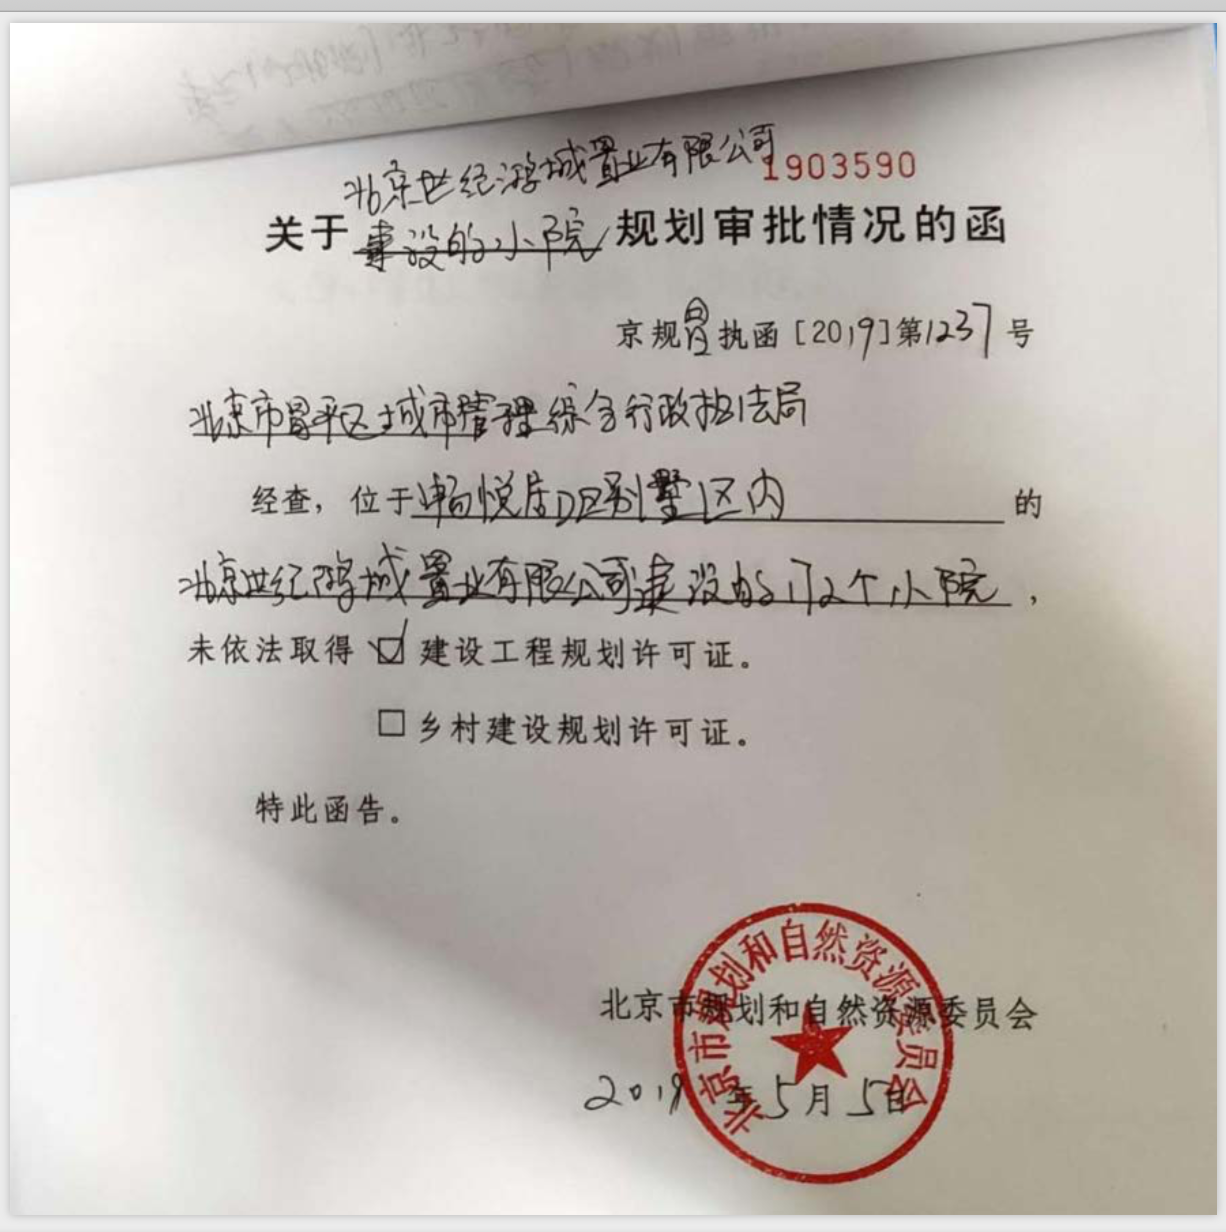 北京世纪鸿城置业有限公司
1903590
关于建设的小院规划审批情况的函
京规昌执函[2019]第1237号
北京市昌平区城市管理综合行政执法局
经查，位于畅悦居D区别墅区内的
北京世纪鸿城置业有限公司建设的172个小院，
未依法取得☑建设工程规划许可证。
□乡村建设规划许可证。
特此函告。
北京市规划和自然资源委员会
北京市规划和自然资源委员会
2019年5月5日